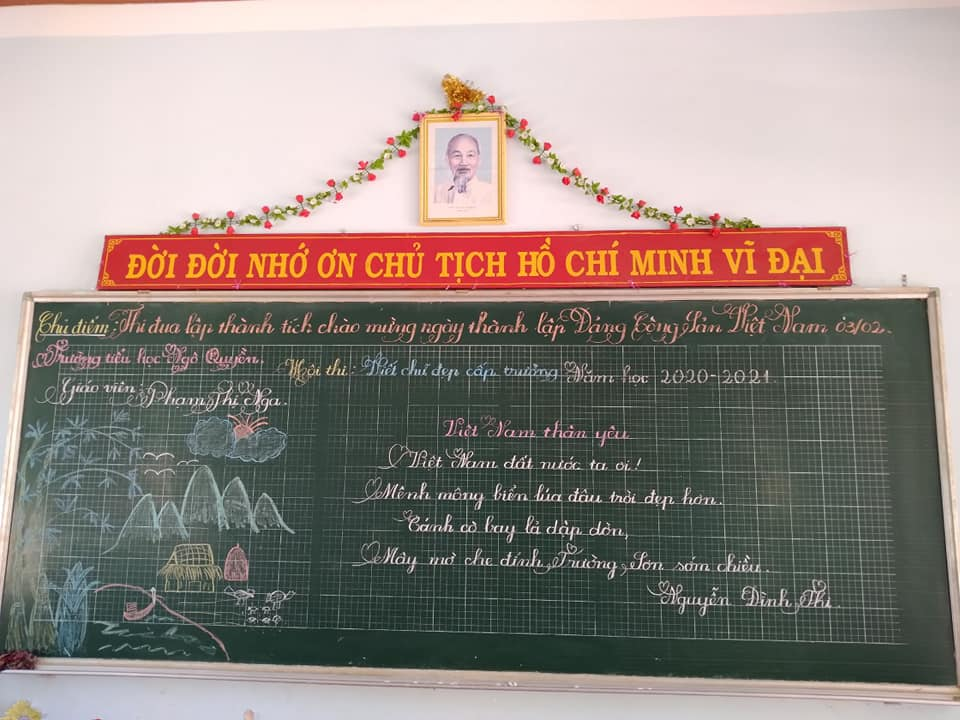 ĐỜI ĐỜI NHỚ ƠN CHỦ TỊCH HỒ CHÍ MINH VĨ ĐẠI
Chủ điểm: Thi đua lập thành tích chào mừng ngày thành lập Đảng Cộng Sản Việt Nam 03/02.
Trường tiểu học Ngô Quyền.
Hội thi: Viết chữ đẹp cấp trường Năm học 2020-2021.
Giáo viên: Phạm Thị Nga.
Việt Nam thân yêu
Việt Nam đất nước ta ơi!
Mênh mông biển lúa đâu trời đẹp hơn.
Cánh cò bay lả dập dờn,
Mây mờ che đỉnh Trường Sơn sớm chiều.
Nguyễn Đình Thi